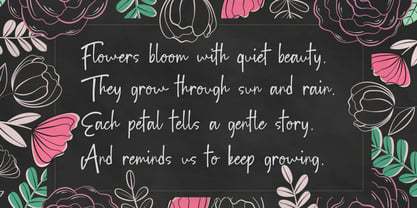 Flowers bloom with quiet beauty.
They grow through sun and rain.
Each petal tells a gentle story.
And reminds us to keep growing.